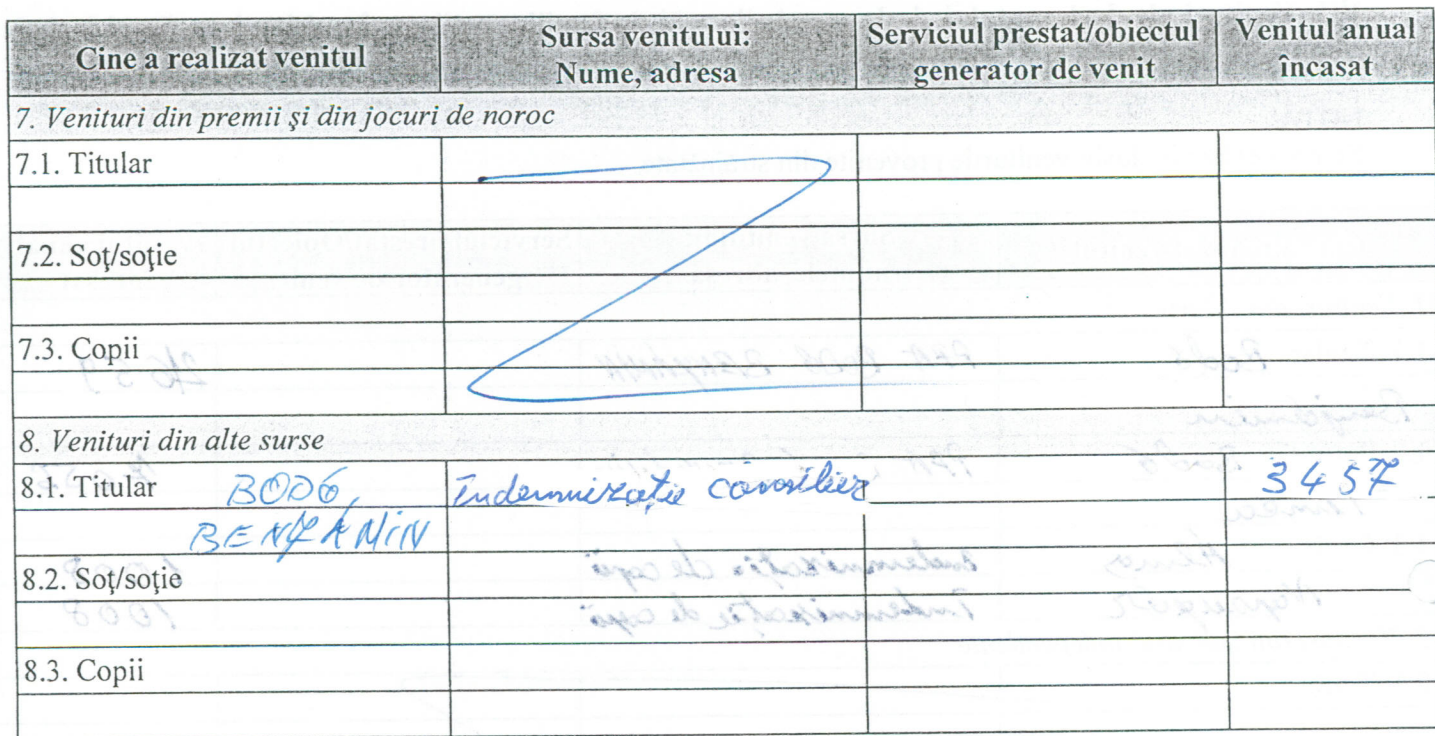 Cine a realizat venitul
Sursa venitului:
Nume, adresa
Serviciul prestat/obiectul
generator de venit
Venitul anual
încasat
7. Venituri din premii şi din jocuri de noroc
7.1. Titular
7.2. Soţ/soţie
7.3. Copii
8. Venituri din alte surse
8.1. Titular BODO, Indemnizație consilier 3457
BENJAMIN
8.2. Soţ/soţie
8.3. Copii